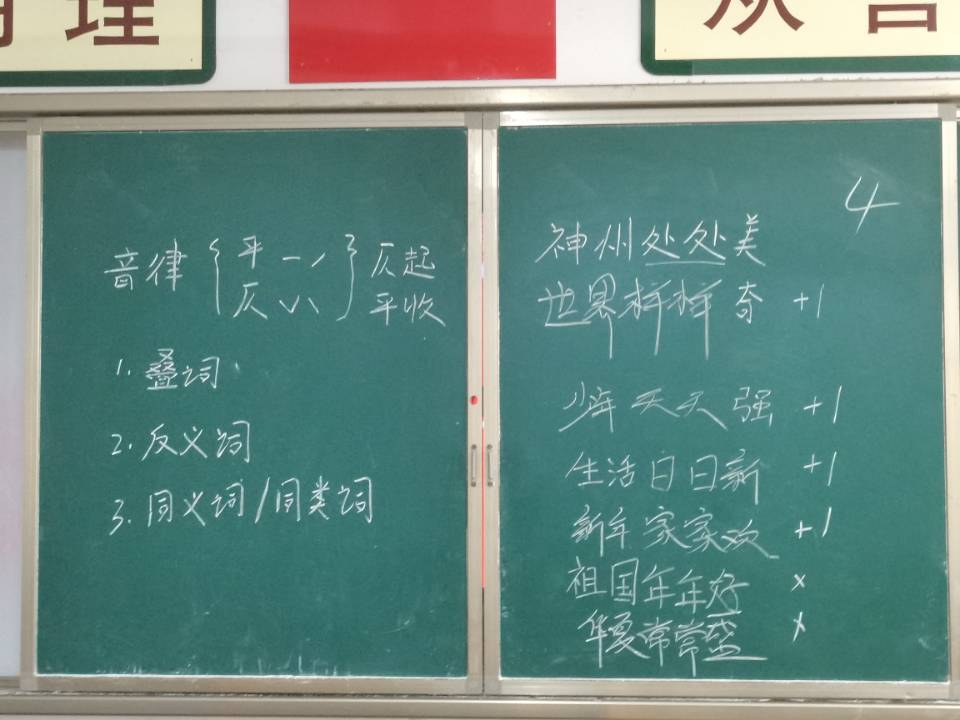 理
从
音律 { 平 ˉ ˊ } 仄起
仄 ˇ ˋ 平收
1. 叠词
2. 反义词
3. 同义词/同类词
4
神州处处美
世界样样奇 +1
少年天天强 +1
生活日日新 +1
新年家家欢 +1
祖国年年好 ×
华夏常常盛 ×